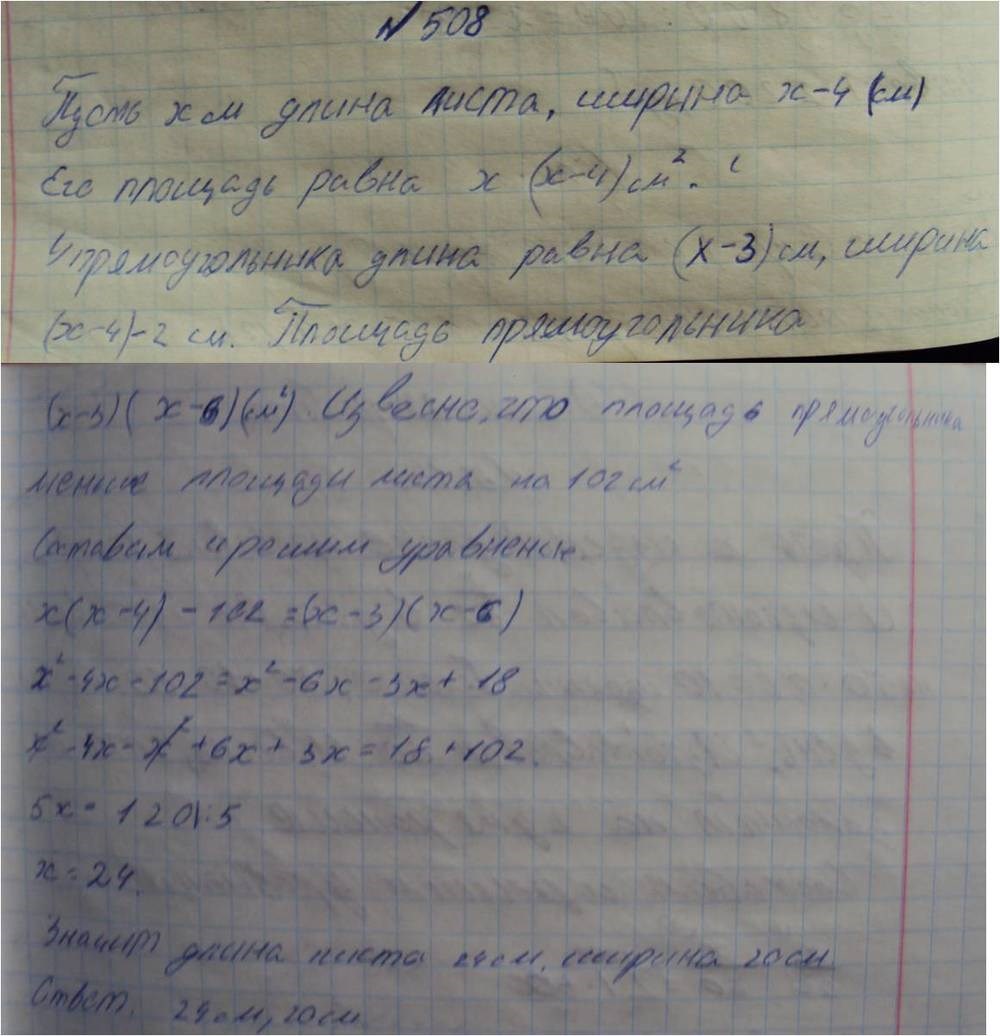 № 508
Пусть х м длина листа, ширина х-4 (см)
Его площадь равна х (х-4) см².
У прямоугольника длина равна (х-3) см, ширина
(х-4)-2 см. Площадь прямоугольника
(х-3)(х-6)(см²). Извесно, что площадь прямоугольника
меньше площади листа на 102 см²
Составим и решим уравнение.
х(х-4) - 102 = (х-3)(х-6)
х²-4х-102=х²-6х-3х+18
х²-4х-х²+6х+3х=18+102.
5х = 120|:5
х=24.
Значит длина листа 24 см, ширина 20 см
Ответ. 24 см, 20 см